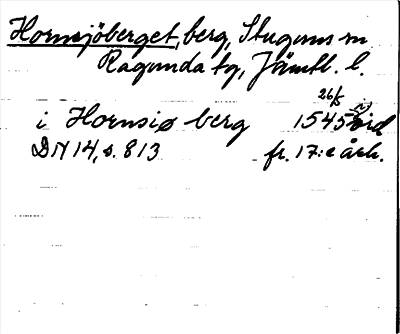 Hornsjöberget, berg, Stuguns sn
Ragunda tg, Jämtl. l.
i Hornsiø berg 1545 26/5 vid
DN 14, s. 813 fr. 17:e årh.